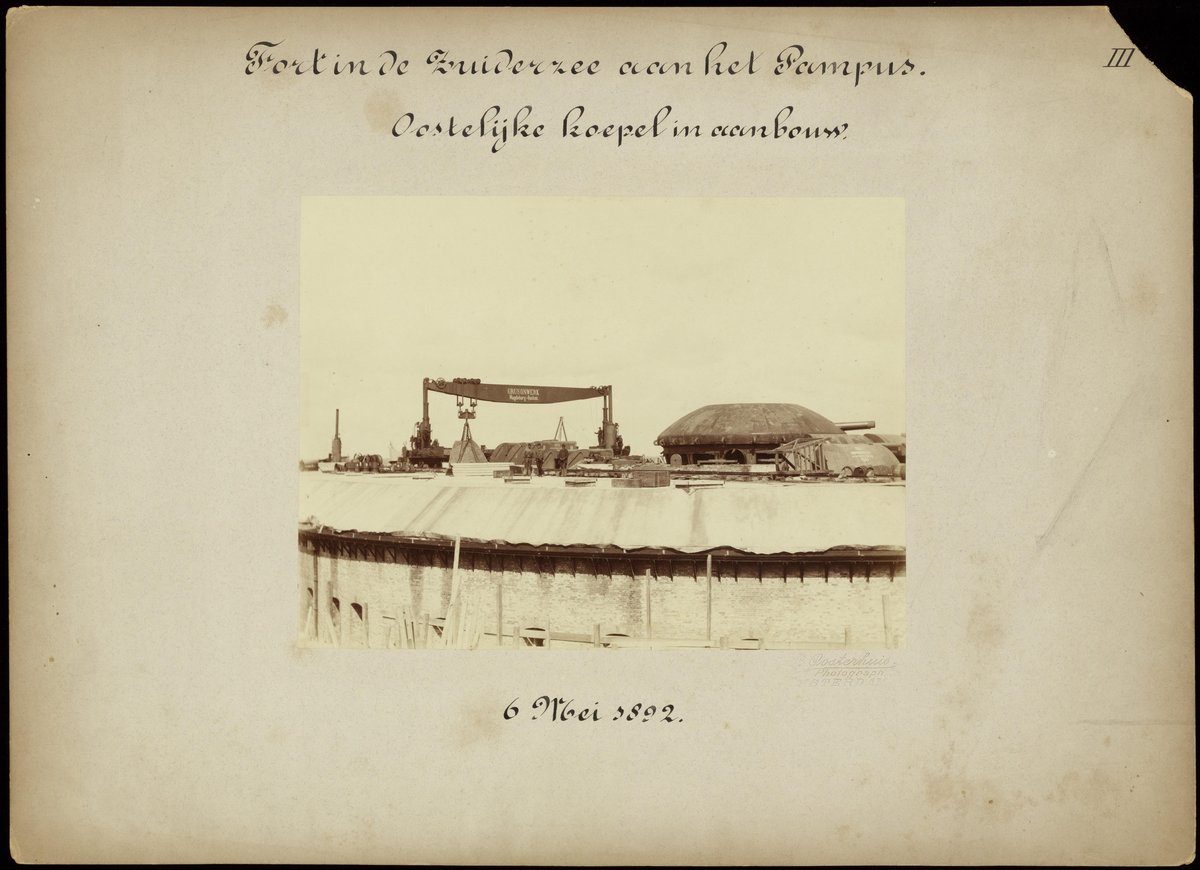 Fort in de Zuiderzee aan het Pampus.
III
Oostelijke koepel in aanbouw.
GRUSONWERK
Magdeburg-Buckau.
Oosterhuis
Photograaph
AMSTERDAM
6 Mei 1892.